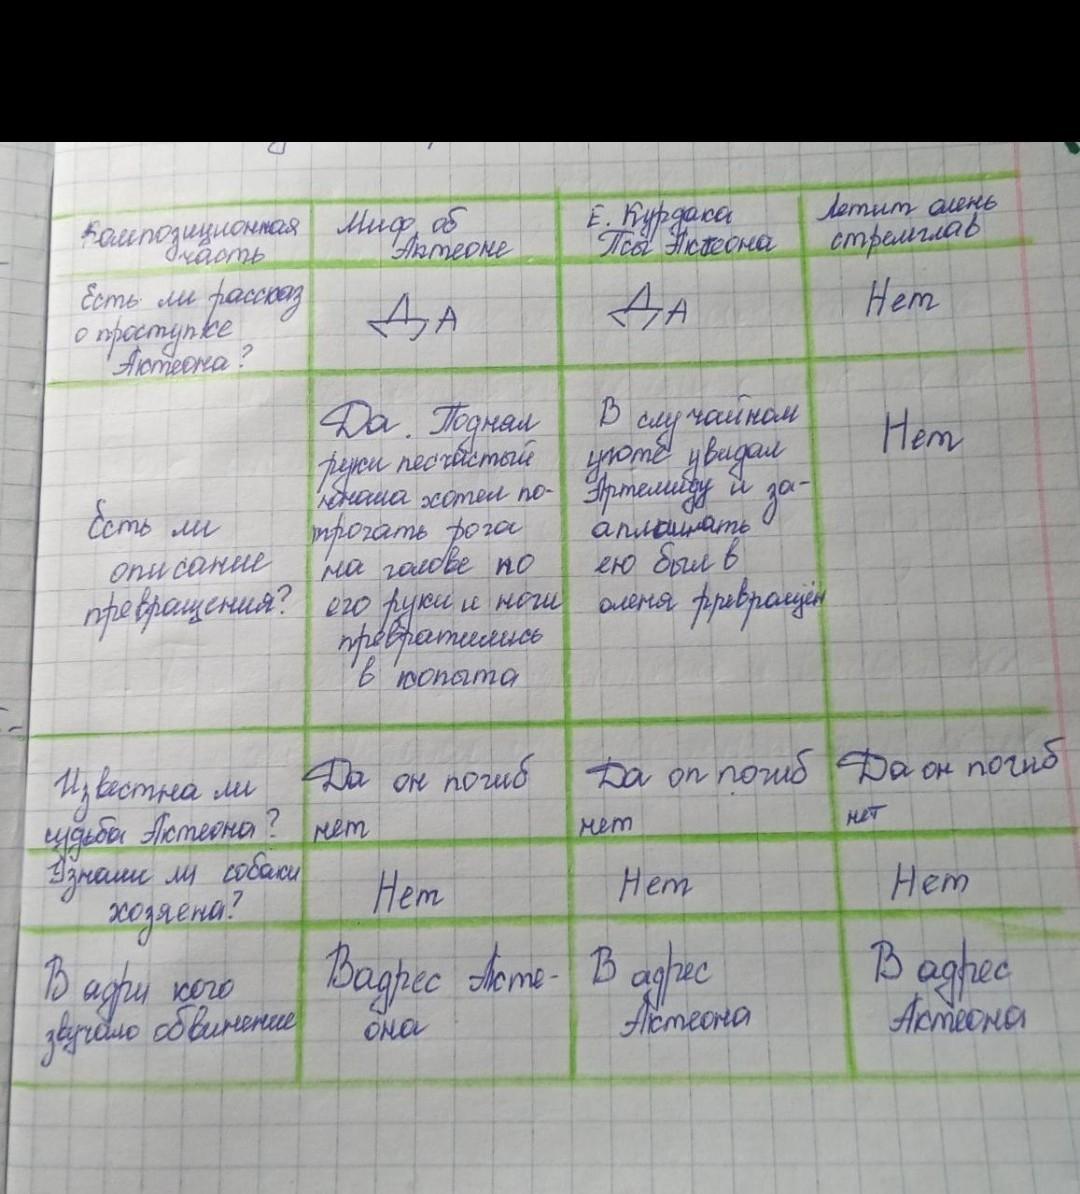 Композиционная
часть
Миф об
Актеоне
Е. Курдака
Псы Актеона
Летит олень
стремглав
Есть ли рассказ
о проступке
Актеона?
ДА
ДА
Нет
Есть ли
описание
превращения?
Да. Поднял
руки несчастый
юноша хотел по-
трогать рога
на голове но
его руки и ноги
превратились
в копыта
В случайном
увидал
Артемиду и за-
ею был в
оленя рревращён
Нет
Известна ли
судьба Актеона?
Да он погиб
нет
Да оп погиб
нет
Да он погиб
нет
Узнали ли собаки
хозяена?
Нет
Нет
Нет
В адри кого
звучало обвинение
Вадрес Акте-
она
В адрес
Актеона
В адрес
Актеона